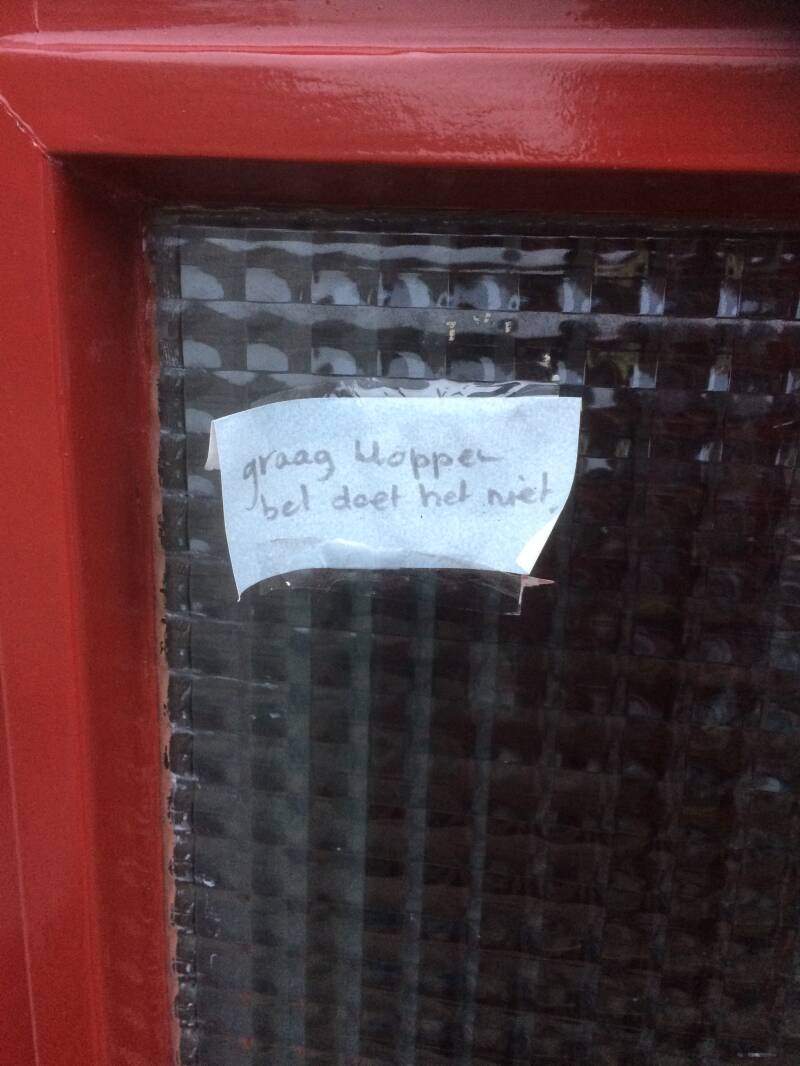 graag kloppen
bel doet het niet.